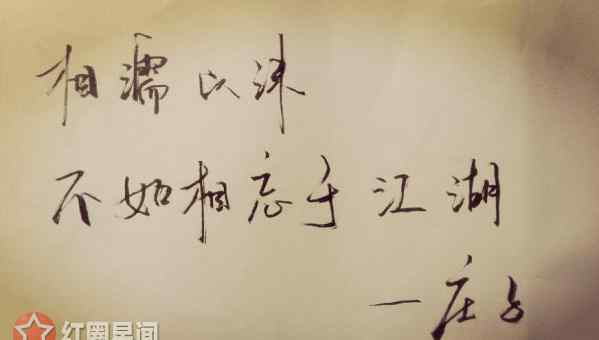 相濡以沫
不如相忘于江湖
一庄子
红圈星间